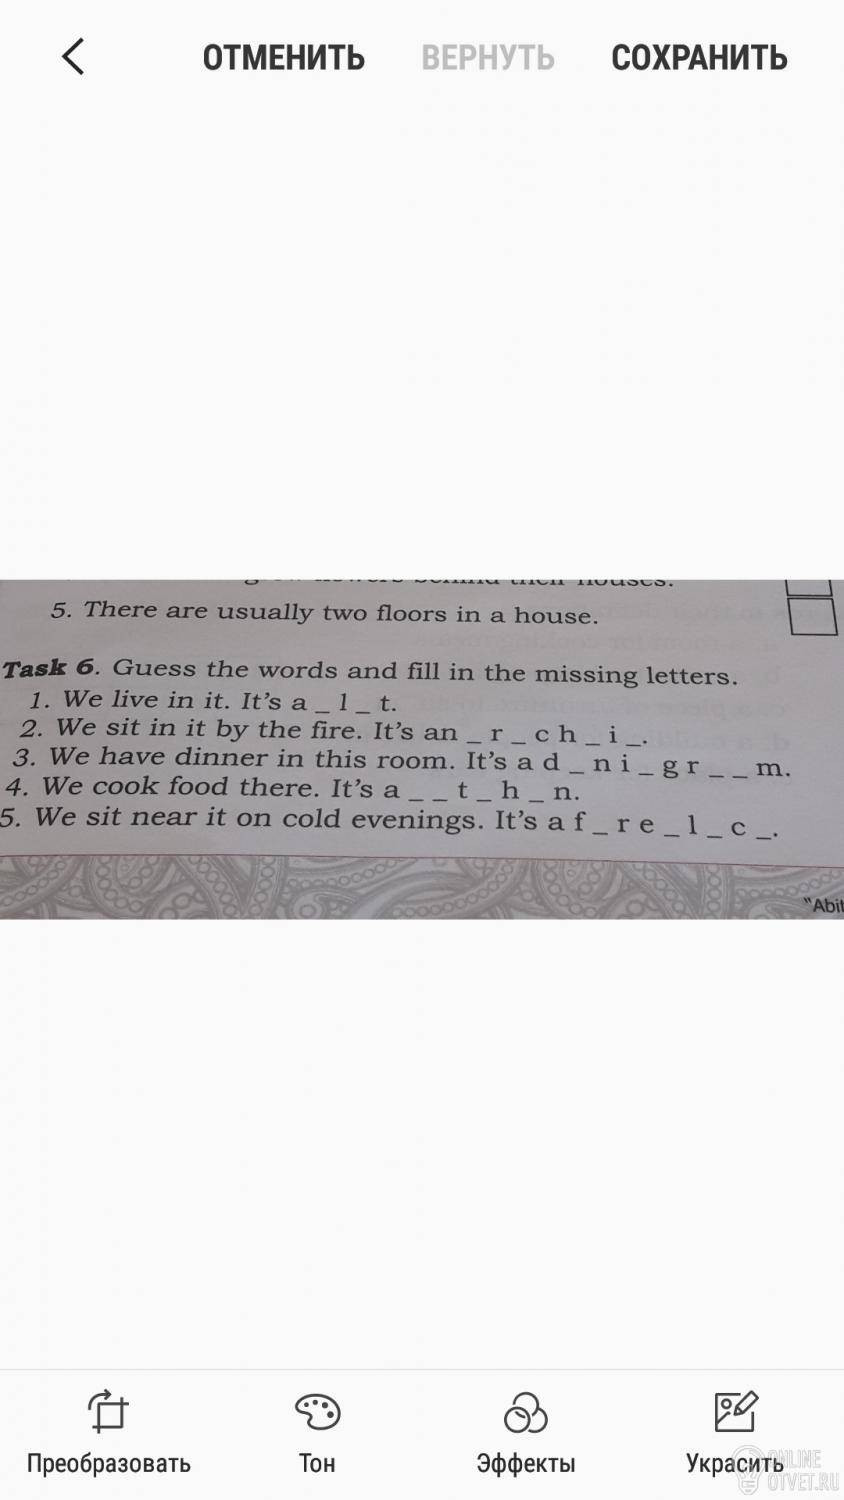 ОТМЕНИТЬ ВЕРНУТЬ СОХРАНИТЬ
behind their houses.
5. There are usually two floors in a house.
Task 6. Guess the words and fill in the missing letters.
1. We live in it. It's a _ l _ t.
2. We sit in it by the fire. It's an _ r _ c h _ i _.
3. We have dinner in this room. It's a d _ n i _ g r _ _ m.
4. We cook food there. It's a _ _ t _ h _ n.
5. We sit near it on cold evenings. It's a f _ r e _ l _ c _.
"Abit
Преобразовать Тон Эффекты Украсить
ONLINE
OTVET.RU